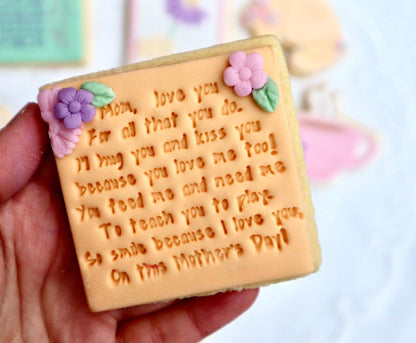 Mom, love you
For all that you do.
I'll hug you and kiss you
because you love me too!
You feed me and need me
To teach you to play.
So smile because I love you,
On this Mother's Day!